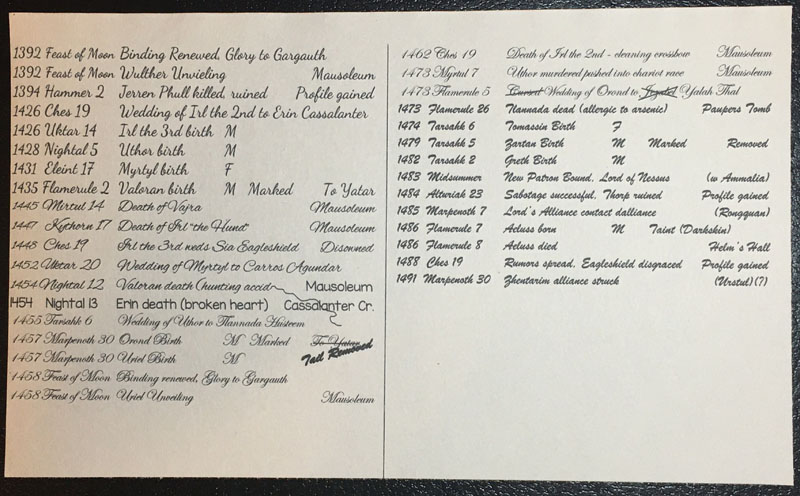 1392 Feast of Moon Binding Renewed, Glory to Gargauth
1392 Feast of Moon Wulther Unvieling Mausoleum
1394 Hammer 2 Jerren Phull killed, ruined Profile gained
1426 Ches 19 Wedding of Irl the 2nd to Erin Cassalanter
1426 Uktar 14 Irl the 3rd birth M
1428 Nightal 5 Uthor birth M
1431 Eleint 17 Myrtyl birth F
1435 Flamerule 2 Valoran birth M Marked To Yatar
1445 Mirtul 14 Death of Vajra Mausoleum
1447 Kythorn 17 Death of Irl "the Hund" Mausoleum
1448 Ches 19 Irl the 3rd weds Sia Eagleshield Disowned
1452 Uktar 20 Wedding of Myrtyl to Carros Agundar
1454 Nightal 12 Valoran death (hunting accid Mausoleum
1454 Nightal 13 Erin death (broken heart) Cassalanter Cr.
1455 Tarsahk 6 Wedding of Uthor to Nannada Husteem
1457 Marpenoth 30 Orond Birth M Marked To Yatar
1457 Marpenoth 30 Uriel Birth M Tail Removed
1458 Feast of Moon Binding renewed, Glory to Gargauth
1458 Feast of Moon Uriel Unveiling Mausoleum
1462 Ches 19 Death of Irl the 2nd - cleaning crossbow Mausoleum
1473 Myrtul 7 Uthor murdered pushed into chariot race Mausoleum
1473 Flamerule 5 Wedding of Orond to Yalah Thal
1473 Flamerule 26 Nannada dead (allergic to arsenic) Paupers Tomb
1474 Tarsahk 6 Tomassin Birth F
1479 Tarsahk 5 Zartan Birth M Marked Removed
1482 Tarsahk 2 Greth Birth M
1483 Midsummer New Patron Bound, Lord of Nessus (w Ammalia)
1484 Alturiak 23 Sabotage successful, Thorp ruined Profile gained
1485 Marpenoth 7 Lord's Alliance contact dalliance (Rongquan)
1486 Flamerule 7 Aeluss born M Taint (Darkskin)
1486 Flamerule 8 Aeluss died Helm's Hall
1488 Ches 19 Rumors spread, Eagleshield disgraced Profile gained
1491 Marpenoth 30 Zhentarim alliance struck (Urstul) (7)